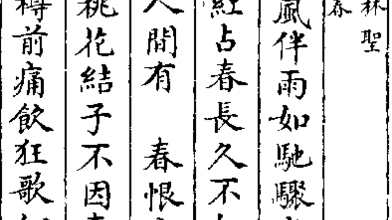 林聖
春
風伴雨如馳驟
紅占春長久不
人間有 春恨
桃花結子不因
樽前痛飲狂歌